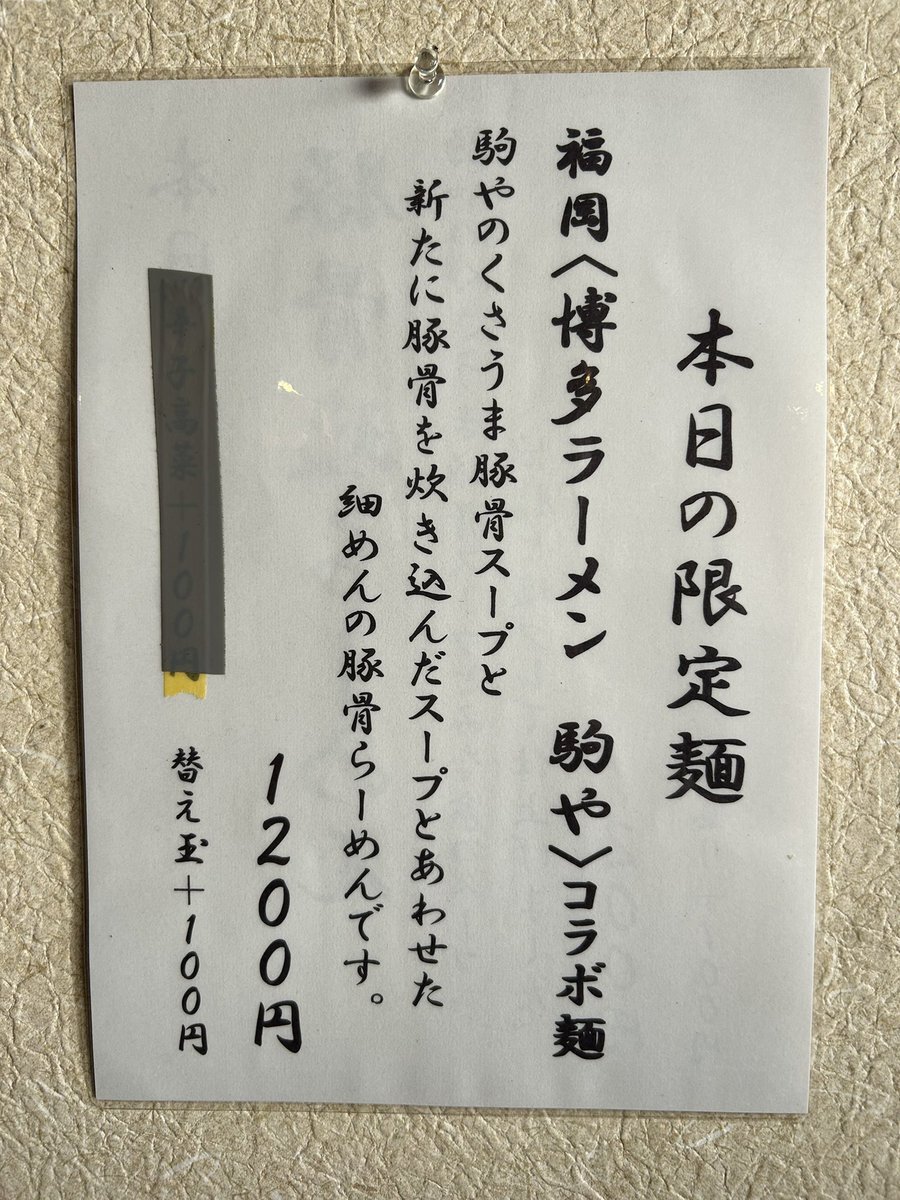 本日の限定麺
福岡〈博多ラーメン 駒や〉コラボ麺
駒やのくさうま豚骨スープと
新たに豚骨を炊き込んだスープとあわせた
細めんの豚骨らーめんです。
1200円
辛子高菜+100円
替え玉+100円